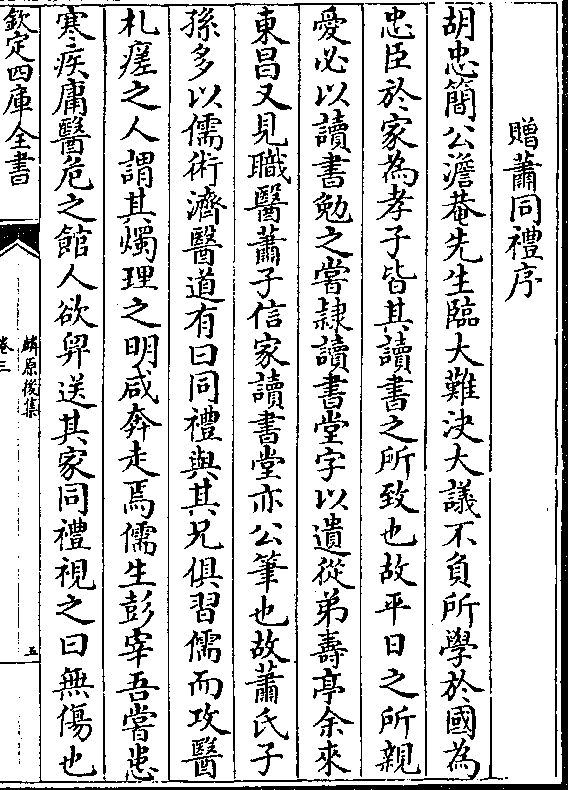 贈蕭同禮序
胡忠簡公澹菴先生臨大難決大議不負所學於國為
忠臣於家為孝子皆其讀書之所致也故平日之所親
愛必以讀書勉之嘗隸讀書堂字以遺從弟壽亭余來
東昌又見職醫蕭子信家讀書堂亦公筆也故蕭氏子
孫多以儒術濟醫道有曰同禮與其兄俱習儒而攻醫
札瘥之人謂其燭理之明咸奔走焉儒生彭宰吾嘗患
寒疾庸醫危之館人欲舁送其家同禮視之曰無傷也
欽定四庫全書
麟原後集
卷三
五